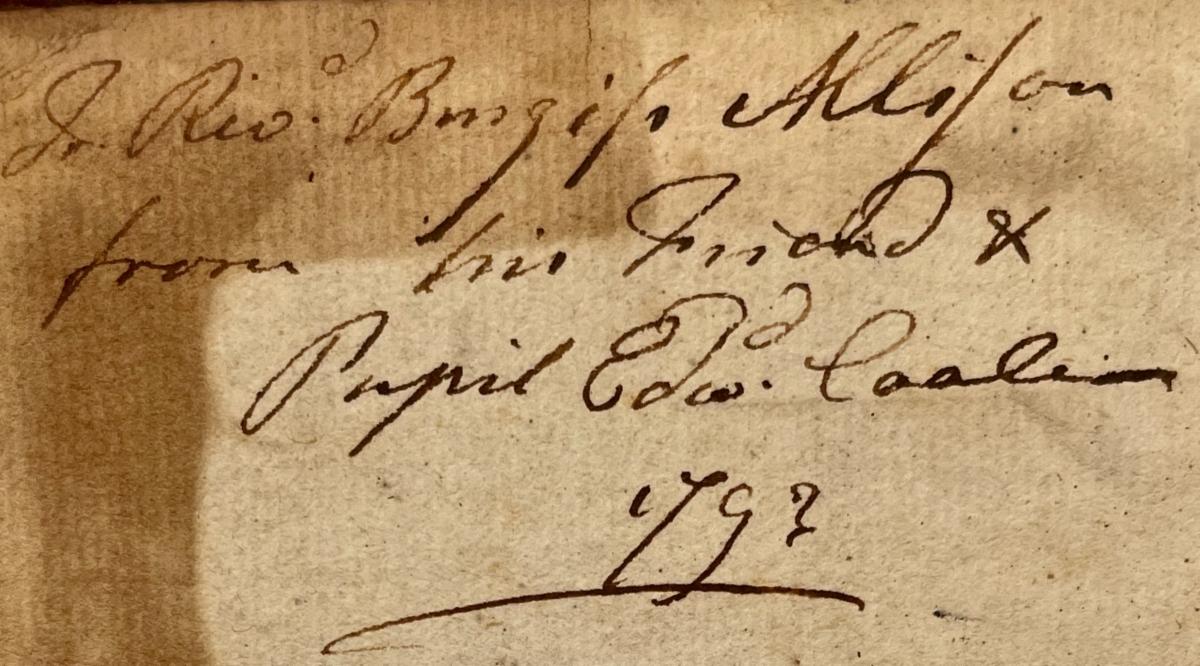 To Revd. Burgiss Allison
from his Friend &
Pupil Edwd.
1793